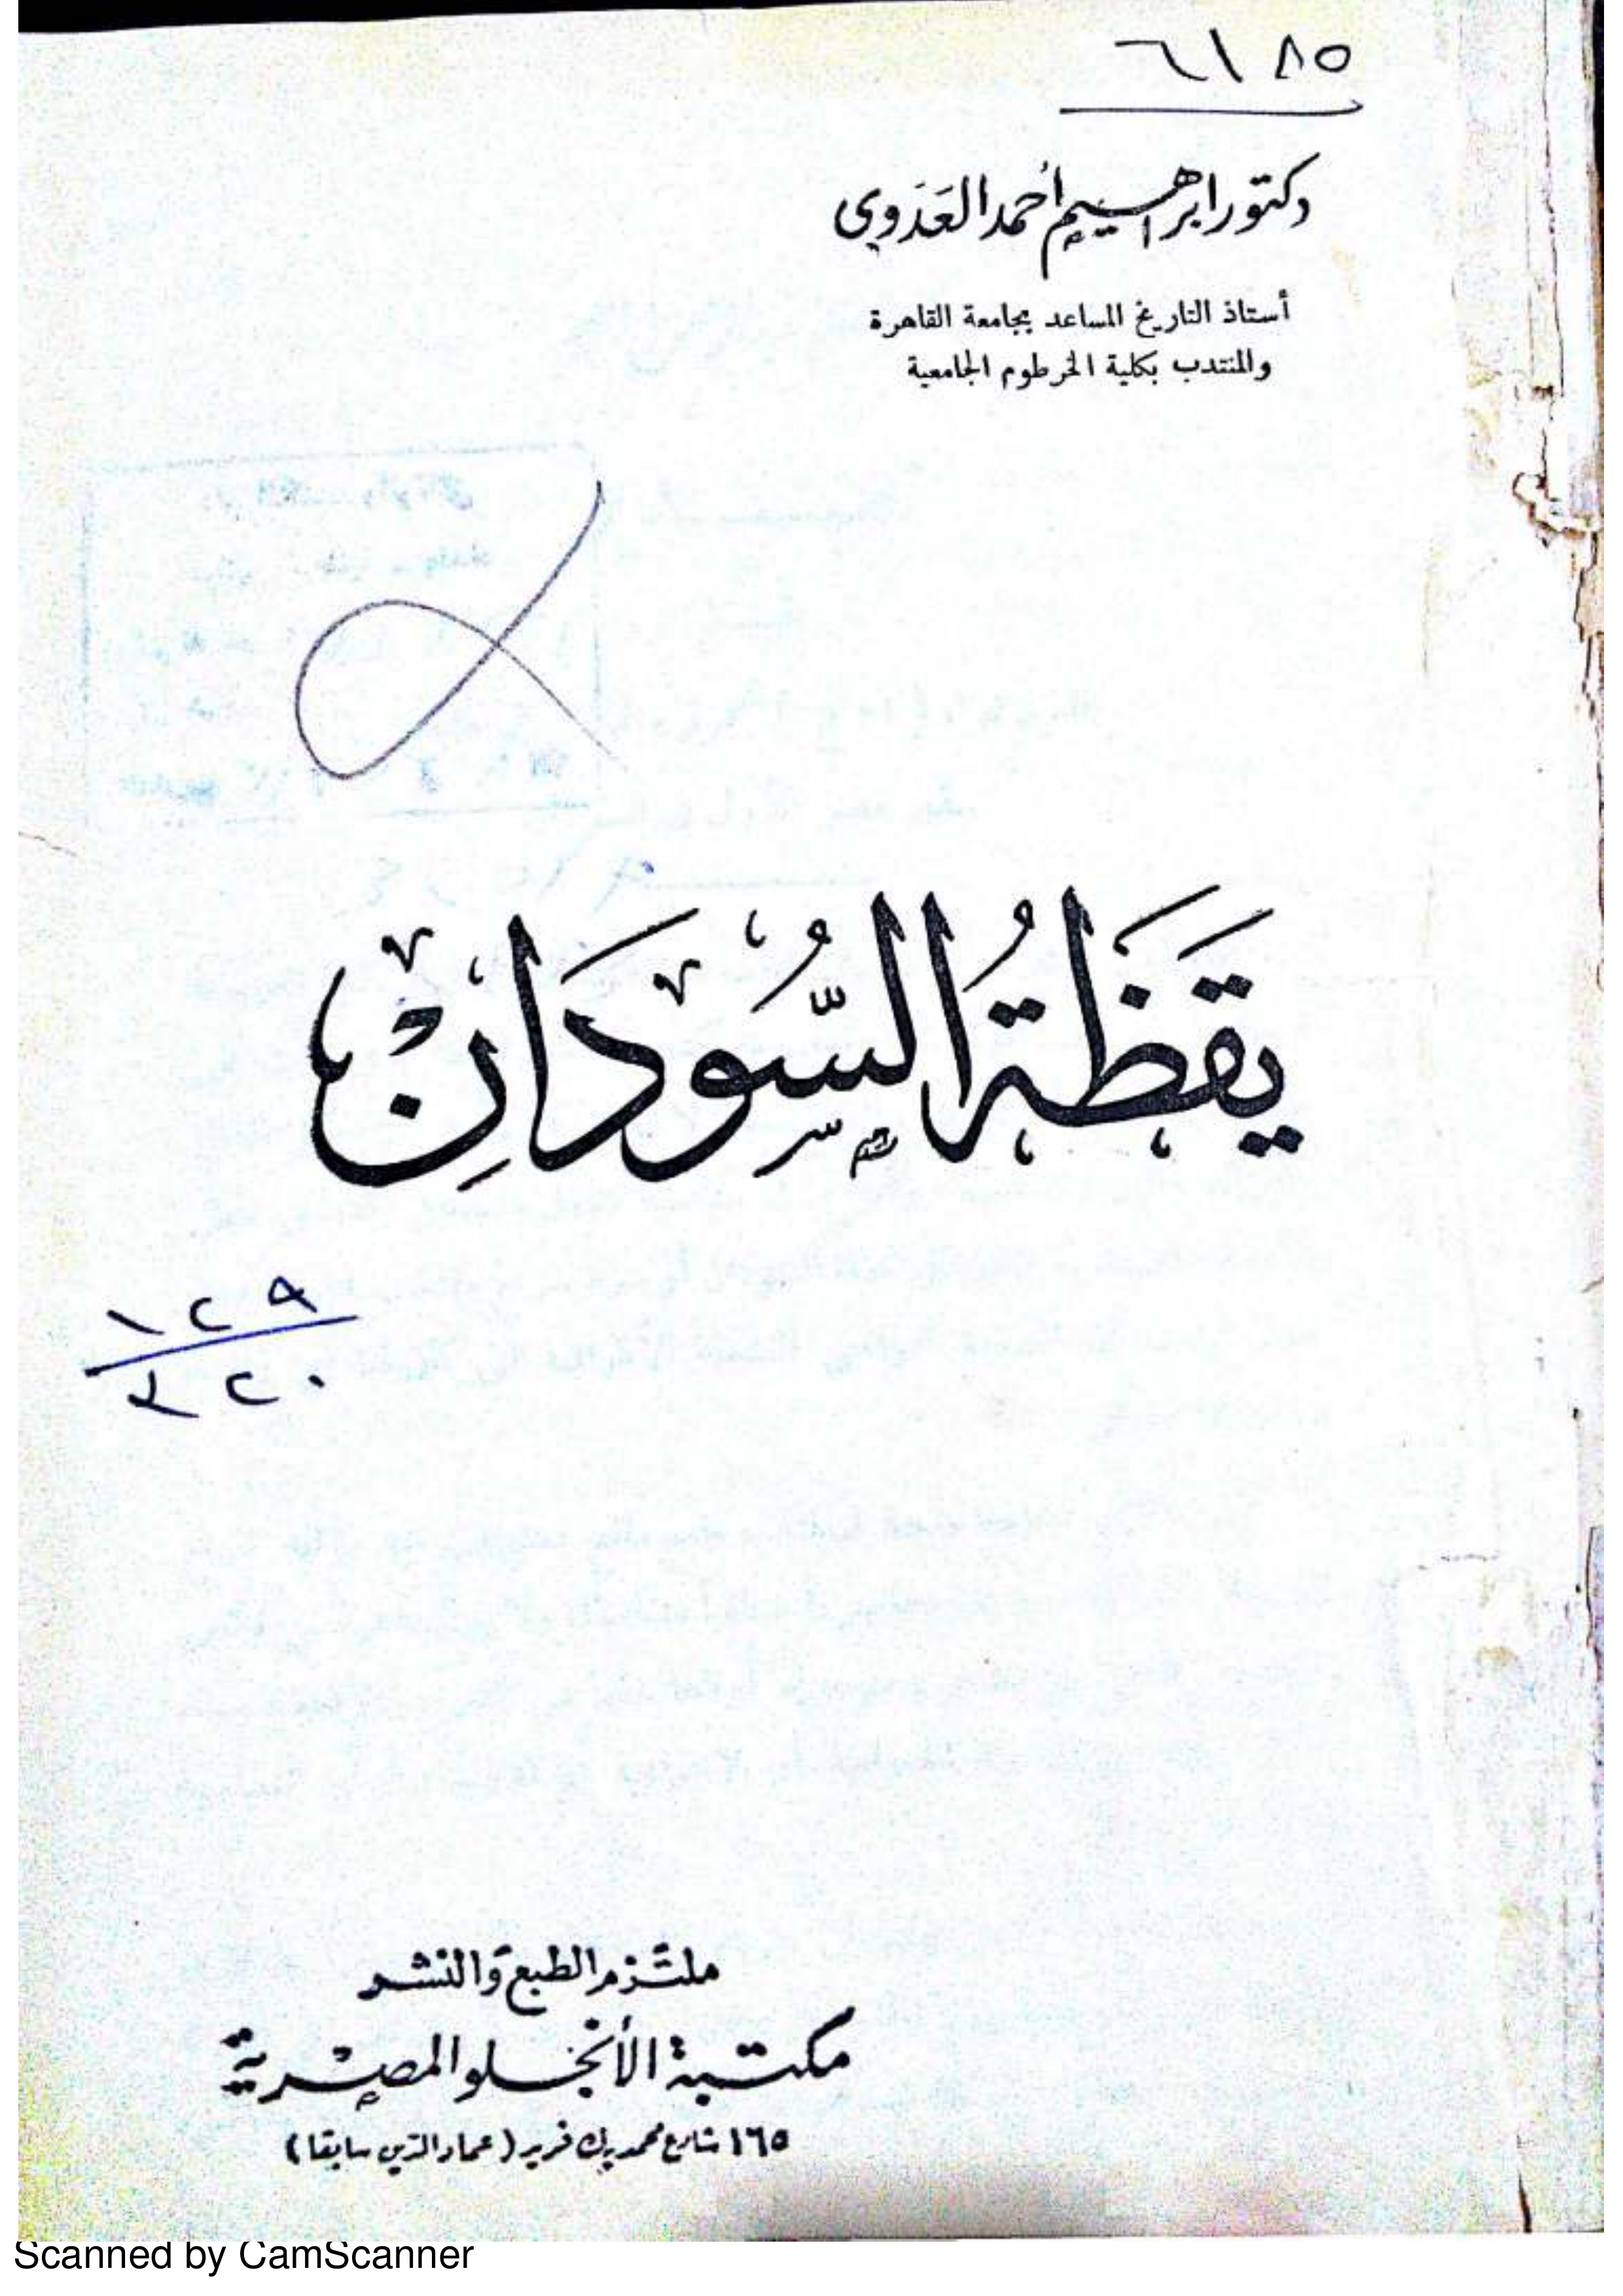 ٦١٨٥
دكتور ابراهيم أحمد العَدَوي
أستاذ التاريخ المساعد بجامعة القاهرة
والمنتدب بكلية الخرطوم الجامعية
يَقَظَةُ السُّودَانِ
١٢٩
٢٢٠
ملتزم الطبع والنشر
مكتبة الأنجلو المصرية
١٦٥ شارع محمد بك فريد (عماد الدين سابقا)
Scanned by CamScanner